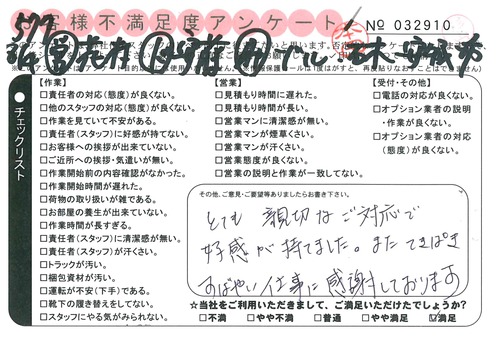 お客様不満足度アンケート
No 032910
チェックリスト
【作業】
□責任者の対応(態度)が良くない。
□他のスタッフの対応(態度)が良くない。
□作業を見ていて不安がある。
□責任者(スタッフ)に好感が持てない。
□お客様への挨拶が出来ていない。
□ご近所への挨拶・気遣いが無い。
□作業開始前の内容確認がなかった。
□作業開始時間が遅れた。
□荷物の取り扱いが雑である。
□お部屋の養生が出来ていない。
□作業時間が長すぎる。
□責任者(スタッフ)に清潔感が無い。
□責任者(スタッフ)が汗くさい。
□トラックが汚い。
□梱包資材が汚い。
□運転が不安(下手)である。
□靴下の履き替えをしてない。
□スタッフにやる気がみられない。
【営業】
□見積もり時間に遅れた。
□見積もり時間が長い。
□営業マンに清潔感が無い。
□営業マンが煙草くさい。
□営業マンが汗くさい。
□営業態度が良くない。
□営業の説明と作業が一致してない。
【受付・その他】
□電話の対応が良くない。
□オプション業者の説明
・作業が良くない。
□オプション業者の対応
(態度)が良くない。
その他、ご意見・ご要望等ありましたらお書き下さい。
とても 親切なご対応で
好感が持てました。また てきぱき
すばやい仕事に感謝しております
☆当社をご利用いただきまして、ご満足いただけたでしょうか?
□不満 □やや不満 □普通 □やや満足 ☑満足